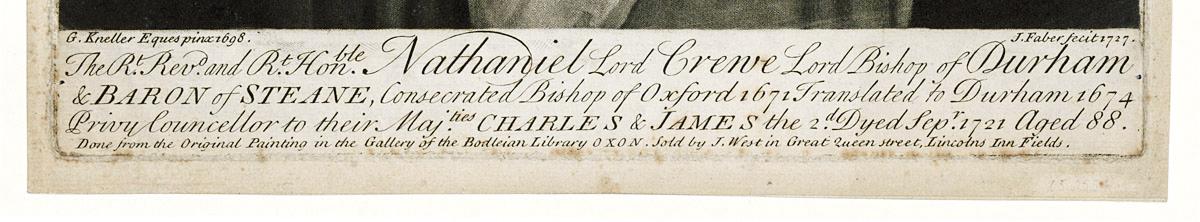 G. Kneller Eques pinx 1698. J. Faber fecit 1727.
The Rt. Revd. and Rt. Honble. Nathaniel Lord Crewe Lord Bishop of Durham
& BARON of STEANE, Consecrated Bishop of Oxford 1671 Translated to Durham 1674
Privy Councellor to their Majties. CHARLES & JAMES the 2d. Dyed Sepr. 1721 Aged 88.
Done from the Original Painting in the Gallery of the Bodleian Library OXON. Sold by J. West in Great Queen street, Lincolns Inn Fields.